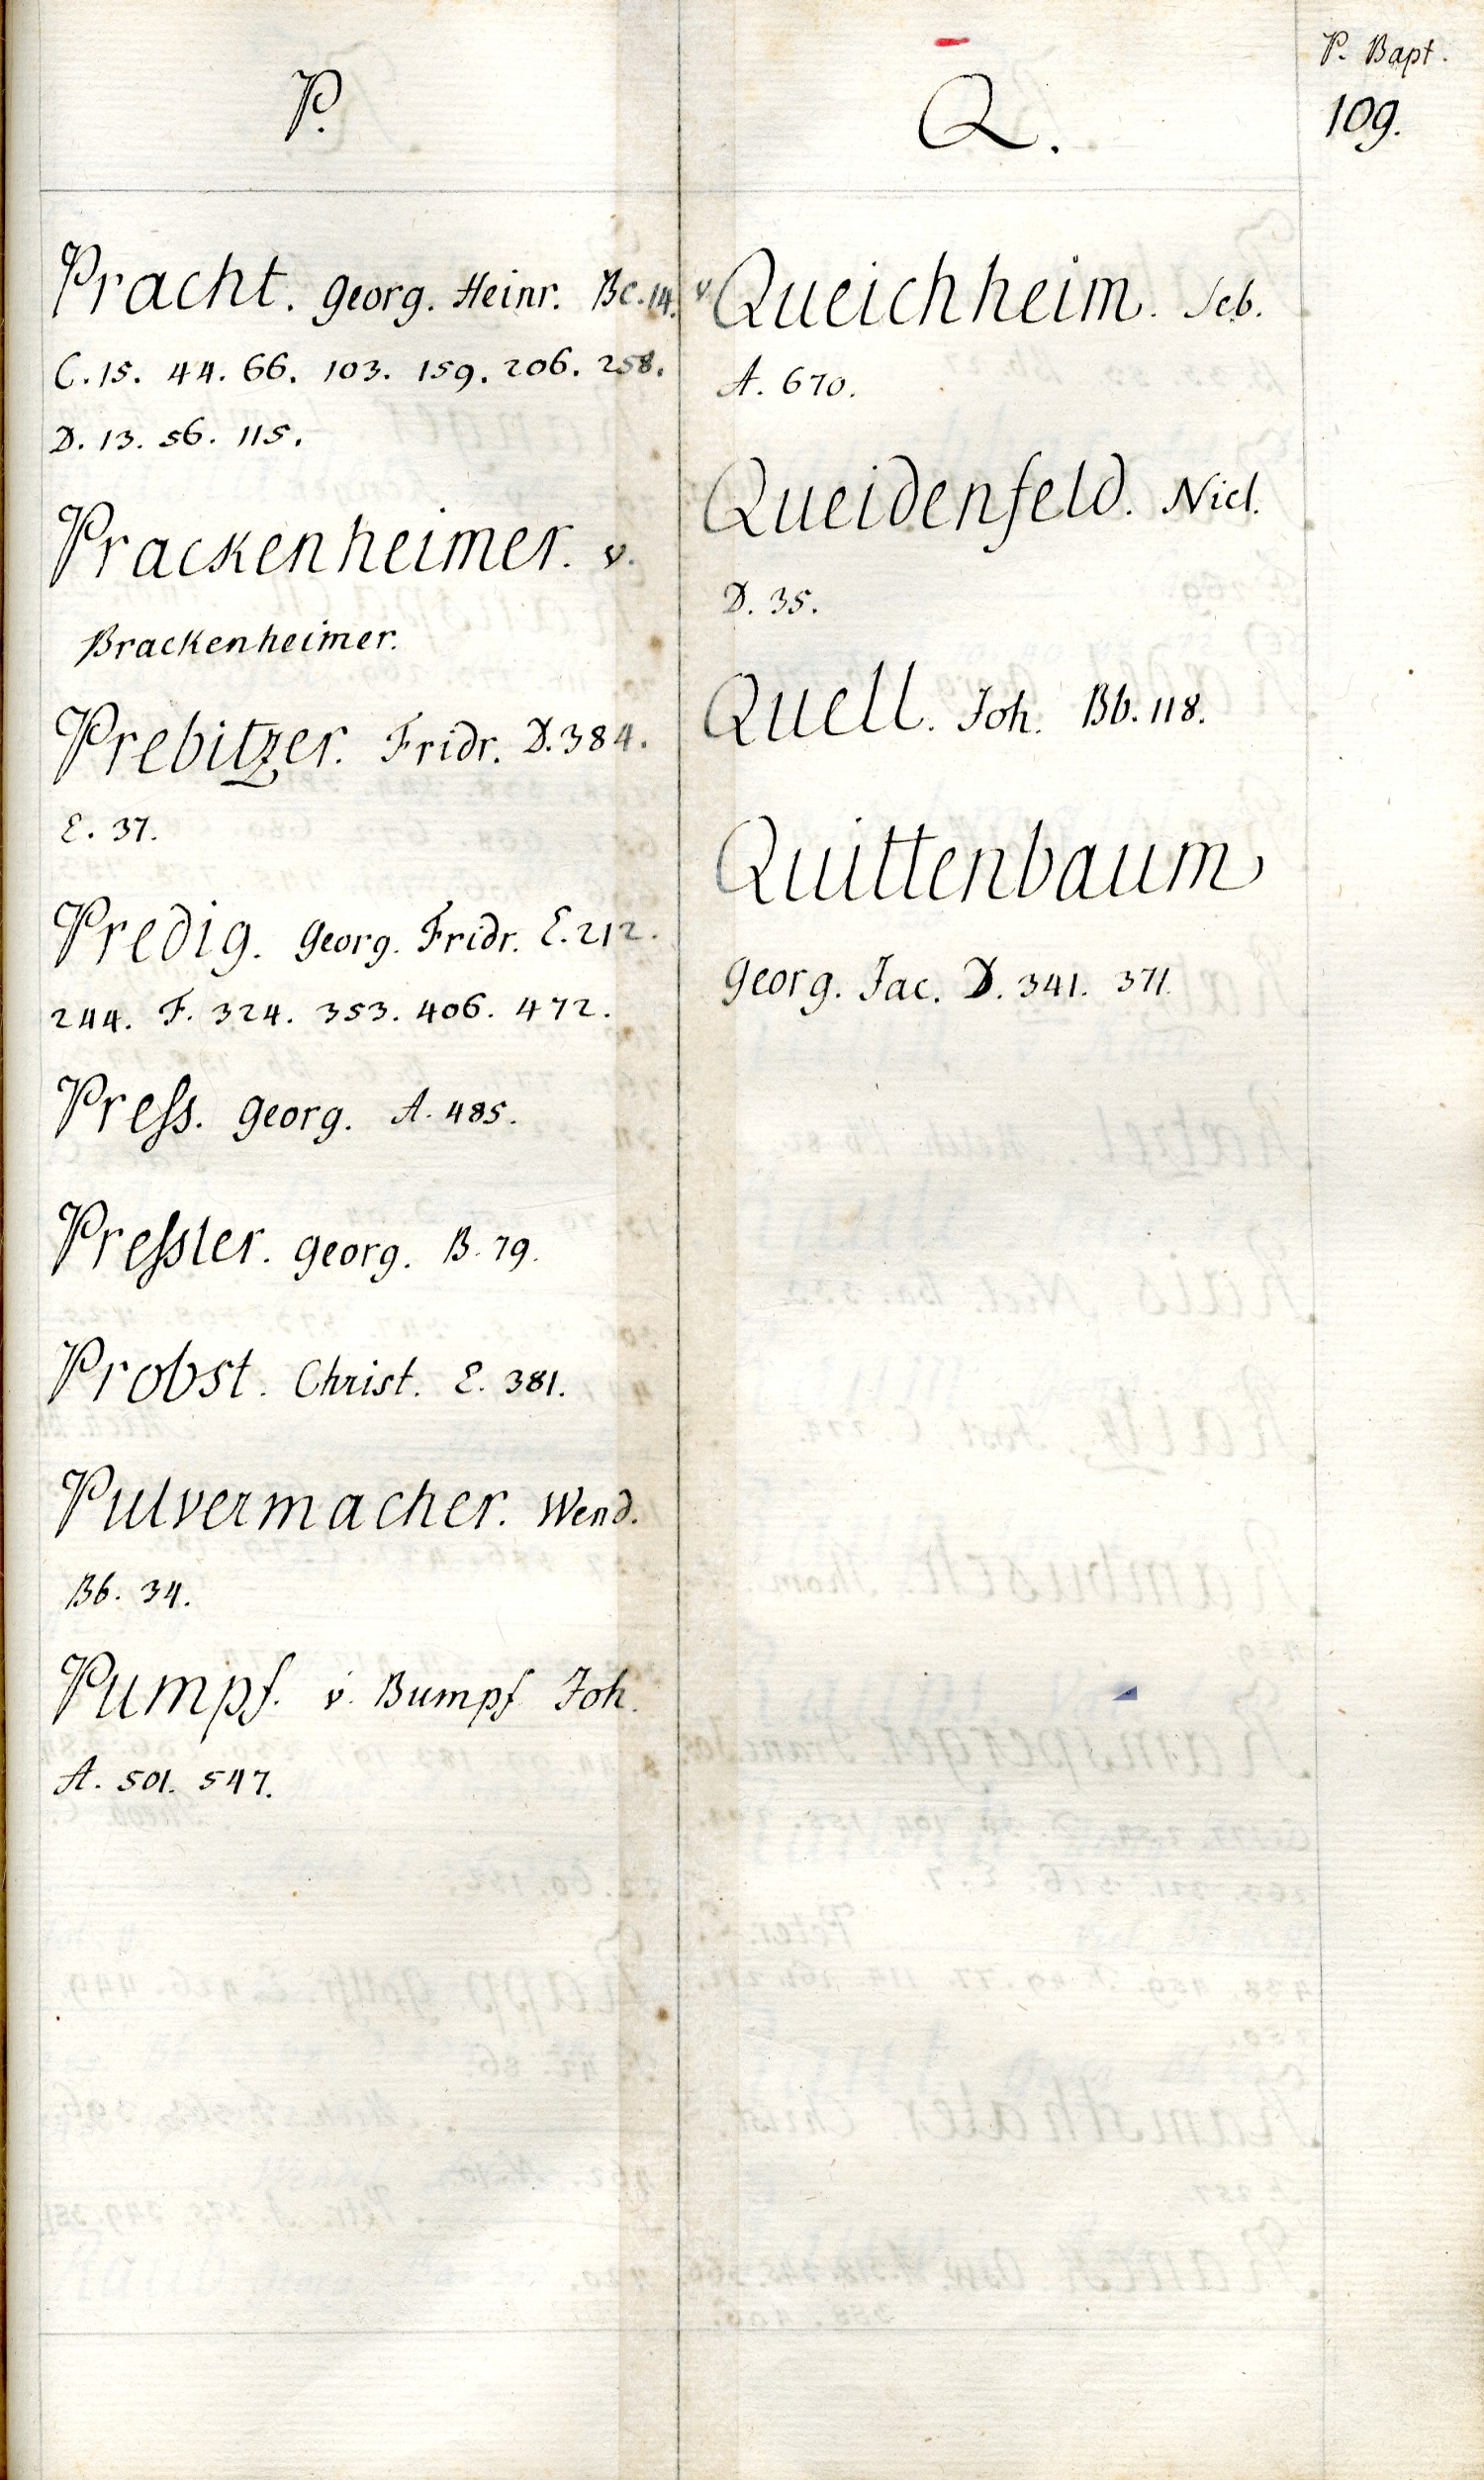 P. Bapt.
109.
P.
Pracht. Georg. Heinr. Bc. 14.
C. 15. 44. 66. 103. 159. 206. 258.
D. 13. 56. 115.
Prackenheimer. v.
Brackenheimer.
Prebitzer. Fridr. D. 384.
E. 37.
Predig. Georg. Fridr. E. 212.
244. F. 324. 353. 406. 472.
Preſs. Georg. A. 485.
Preſsler. Georg. B. 79.
Probst. Christ. E. 381.
Pulvermacher. Wend.
Bb. 34.
Pumpf. v. Bumpf Joh.
A. 501. 547.
Q.
v Queichheim. Seb.
A. 670.
Queidenfeld. Nicl.
D. 35.
Quell. Joh. Bb. 118.
Quittenbaum
Georg. Jac. D. 341. 371.